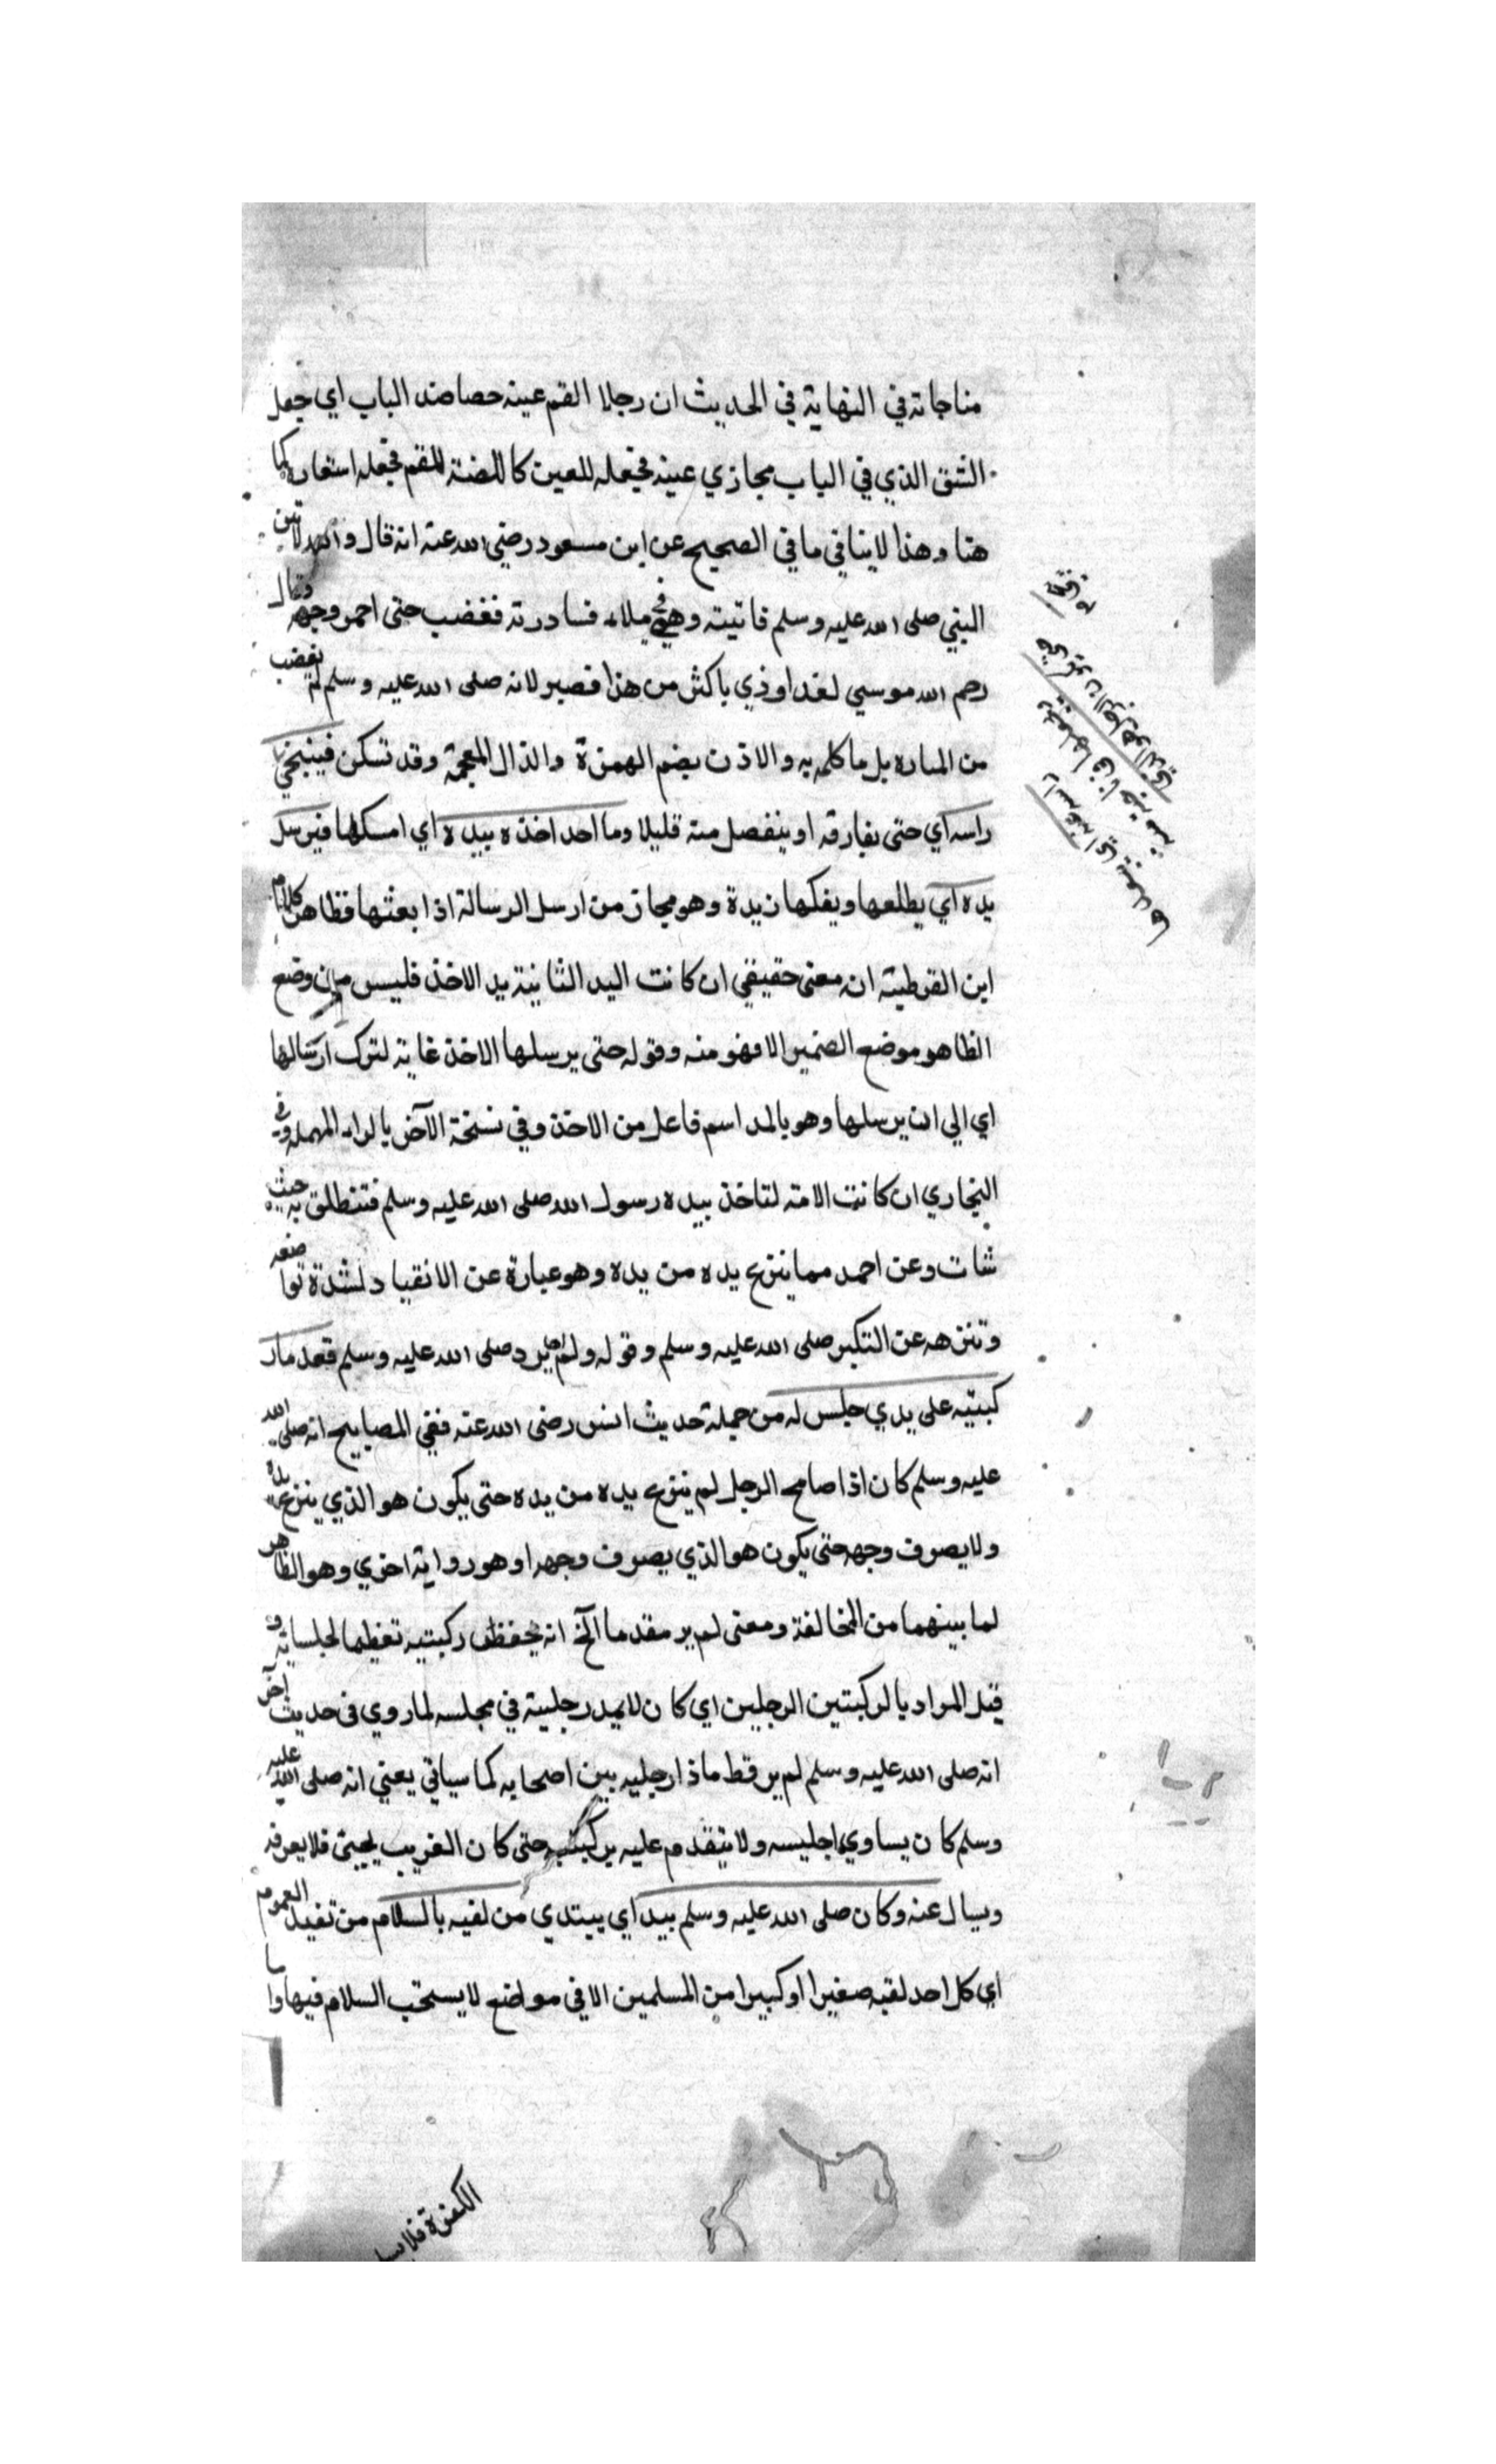 مناجاته في النهاية في الحديث ان رجلا القم عينه خصاصة الباب اي جعل
الشق الذي في الباب مجازي عينه فجعله للعين كاللقمة للفم فجعله استعارة كما
هنا وهذا لا ينافي ما في الصحيح عن ابن مسعود رضي الله عنه انه قال والله لاتين
النبي صلى الله عليه وسلم فاتيته وهو في ملاء فساررته فغضب حتى احمر وجهه وقال
رحم الله موسي لقد اوذي باكثر من هذا فصبر لانه صلى الله عليه وسلم لم يغضب
من المساره بل ما كلمه به والاذن بضم الهمزة والذال المعجمة وقد تسكن فينحي
راسه اي حتى يفارقه او ينفصل منه قليلا وما احد اخذه بيده اي امسكها فيرسل
يده اي يطلعها ويفكها من يدة وهو مجاز من ارسل الرسالة اذا بعثها فظاهر كلام
ابن القوطية انه معنى حقيقي ان كانت اليد الثانية يد الاخذ فليس من وضع
الظاهر موضع الضمير الا فهو منه وقوله حتى يرسلها الاخذ غاية لترك ارسالها
اي الي ان يرسلها وهو بالمد اسم فاعل من الاخذ وفي نسخة الآخر بالراء المهملة وفي
البخاري ان كانت الامة لتاخذ بيده رسول الله صلى الله عليه وسلم فتنطلق به حيث
شات وعن احمد مما ينزع يده من يده وهو عبارة عن الانقياد لشدة تواضعه
وتنزهه عن التكبر صلى الله عليه وسلم وقوله ولم ير صلى الله عليه وسلم مقدما ر
كبتيه على يدي جليس له من جملة حديث انس رضى الله عنه ففي المصابيح انه صلى الله
عليه وسلم كان اذا صافح الرجل لم ينزع يده من يده حتى يكون هو الذي ينزع يده
ولا يصرف وجهه حتى يكون هو الذي يصرف وجهه او هو رواية اخري وهو الظاهر
لما بينهما من المخالفة ومعنى لم ير مقدما الخ انه يخفظ ركبتيه تعظيما لجلسايه و
قيل المراد بالركبتين الرجلين اي كان لا يمد رجليه في مجلسه لما روي في حديث اخر
انه صلى الله عليه وسلم لم ير قط مادا رجليه بين اصحابه كما سياتي يعني انه صلى الله عليه
وسلم كان يساوي جليسه ولا يتقدم عليه بركبتيه حتى كان الغريب يجيئ فلا يعرفه
ويسال عنه وكان صلى الله عليه وسلم يبدا اي يبتدي من لقيه بالسلام من تفيد العموم
اي كل احد لقيه صغيرا او كبيرا من المسلمين الا في مواضع لا يستحب السلام فيها واما
الكفرة فلا